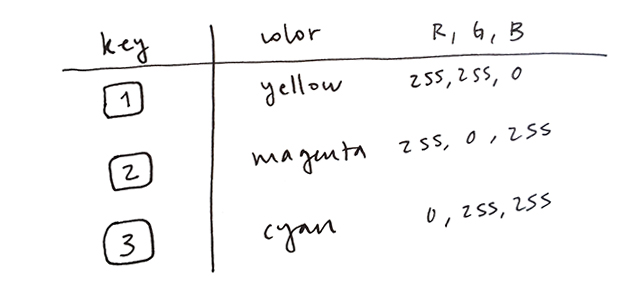 key color R, G, B
1 yellow 255, 255, 0
2 magenta 255, 0, 255
3 cyan 0, 255, 255